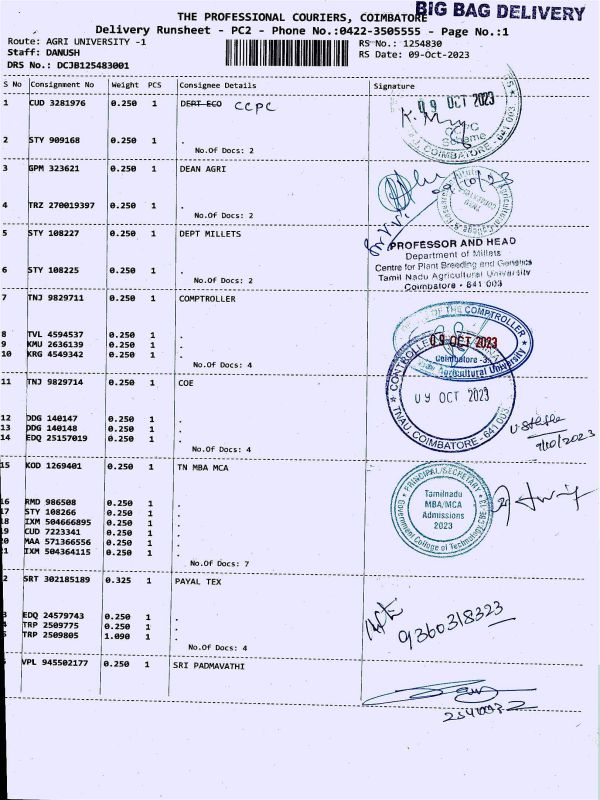 THE PROFESSIONAL COURIERS, COIMBATORE
BIG BAG DELIVERY
Delivery Runsheet - PC2 - Phone No.:0422-3505555 - Page No.:1
Route: AGRI UNIVERSITY -1
RS No.: 1254830
Staff: DANUSH
RS Date: 09-Oct-2023
DRS No.: DCJB125483001
S No Consignment No Weight PCS Consignee Details Signature
1 CUD 3281976 0.250 1 DEPT ECO CCPC
09 OCT 2023
COIMBATORE - 641 003
2 STY 909168 0.250 1 .
No.Of Docs: 2
3 GPM 323621 0.250 1 DEAN AGRI
4 TRZ 270019397 0.250 1 .
No.Of Docs: 2
5 STY 108227 0.250 1 DEPT MILLETS
PROFESSOR AND HEAD
Department of Millets
Centre for Plant Breeding and Genetics
Tamil Nadu Agricultural University
Coimbatore - 641 003
6 STY 108225 0.250 1 .
No.Of Docs: 2
7 TNJ 9829711 0.250 1 COMPTROLLER
OF THE COMPTROLLER
09 OCT 2023
Coimbatore -3.
Agricultural University
8 TVL 4594537 0.250 1 .
9 KMU 2636139 0.250 1 .
10 KRG 4549342 0.250 1 .
No.Of Docs: 4
11 TNJ 9829714 0.250 1 COE
09 OCT 2023
TNAU, COIMBATORE - 641 003
12 DDG 140147 0.250 1 .
13 DDG 140148 0.250 1 .
14 EDQ 25157019 0.250 1 .
9/10/2023
No.Of Docs: 4
15 KOD 1269401 0.250 1 TN MBA MCA
PRINCIPAL/SECRETARY
Tamilnadu
MBA/MCA
Admissions
2023
Government College of Technology, CBE
16 RMD 986508 0.250 1 .
17 STY 108266 0.250 1 .
18 IXM 504666895 0.250 1 .
19 CUD 7223341 0.250 1 .
0 MAA 571366556 0.250 1 .
1 IXM 504364115 0.250 1 .
No.Of Docs: 7
2 SRT 302185189 0.325 1 PAYAL TEX
9360318323
3 EDQ 24579743 0.250 1 .
4 TRP 2509775 0.250 1 .
5 TRP 2509805 1.090 1 .
No.Of Docs: 4
VPL 945502177 0.250 1 SRI PADMAVATHI